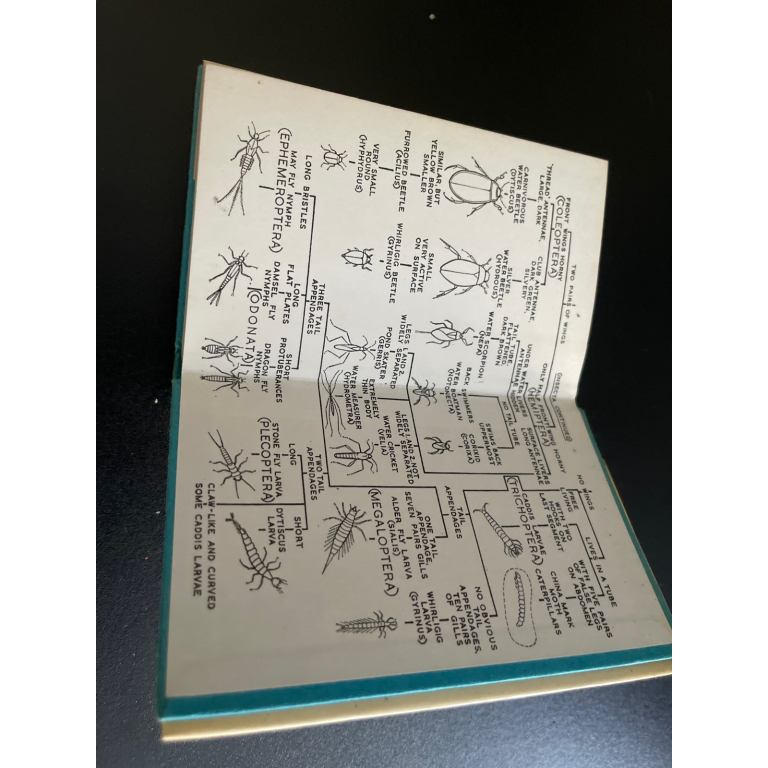 (INSECTA CONTINUED)
TWO PAIRS OF WINGS
FRONT WINGS HORNY
(COLEOPTERA)
THREAD ANTENNAE,
LARGE, DARK
CARNIVOROUS
WATER BEETLE
(DYTISCUS)
SIMILAR, BUT
YELLOW BROWN
SMALLER
FURROWED BEETLE
(ACILIUS)
VERY SMALL
ROUND
(HYPHYDRUS)
CLUB ANTENNAE,
DARK GREEN,
SILVERY
SILVER
WATER BEETLE
(HYDROUS)
SMALL
VERY ACTIVE
ON SURFACE
WHIRLIGIG BEETLE
(GYRINUS)
ONLY HALF FRONT WING HORNY
(HEMIPTERA)
UNDER WATER LIVERS
ANTENNAE
TAIL TUBE,
FLATTENED,
DARK BROWN
WATER SCORPION
(NEPA)
NO TAIL TUBE
BACK SWIMMERS
WATER BOATMAN
(NOTONECTA)
SWIMS BACK
UPPERMOST
CORIXID
(CORIXA)
SURFACE LIVERS
LONG ANTENNAE
LEGS 1 AND 2,
WIDELY SEPARATED
POND SKATER
(GERRIS)
EXTREMELY
THIN BODY
WATER MEASURER
(HYDROMETRA)
LEGS 1 AND 2, NOT
WIDELY SEPARATED
WATER CRICKET
(VELIA)
NO WINGS
FREE
LIVING
LIVES IN A TUBE
WITH TWO
HOOKS ON
LAST SEGMENT
CADDIS LARVAE
(TRICHOPTERA)
WITH FIVE PAIRS
OF FALSE LEGS
ON ABDOMEN
CHINA MARK
MOTH
CATERPILLARS
TAIL
APPENDAGES
NO OBVIOUS
TAIL
APPENDAGES,
TEN PAIRS
OF GILLS
WHIRLIGIG
LARVA
(GYRINUS)
ONE TAIL
APPENDAGE,
SEVEN PAIRS GILLS
ALDER FLY LARVA
(SIALIS)
(MEGALOPTERA)
THREE TAIL
APPENDAGES
LONG BRISTLES
MAY FLY NYMPH
(EPHEMEROPTERA)
LONG
FLAT PLATES
DAMSEL FLY
NYMPHS
SHORT
PROTUBERANCES
DRAGON FLY
NYMPHS
(ODONATA)
TWO TAIL
APPENDAGES
LONG
STONE FLY LARVA
(PLECOPTERA)
SHORT
DYTISCUS
LARVA
CLAW-LIKE AND CURVED
SOME CADDIS LARVAE